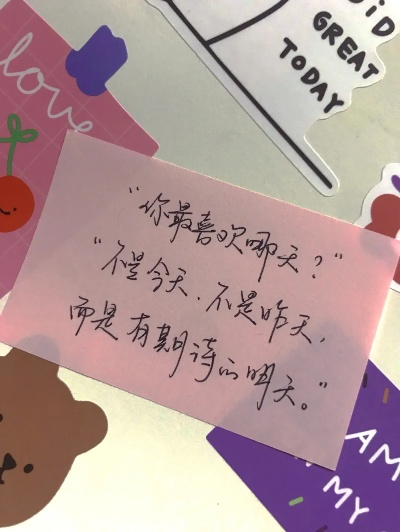 DiD
GREAT
TODAY
love
“你最喜欢哪天？”
“不是今天、不是昨天，
而是有期待的明天。”
AM
MY